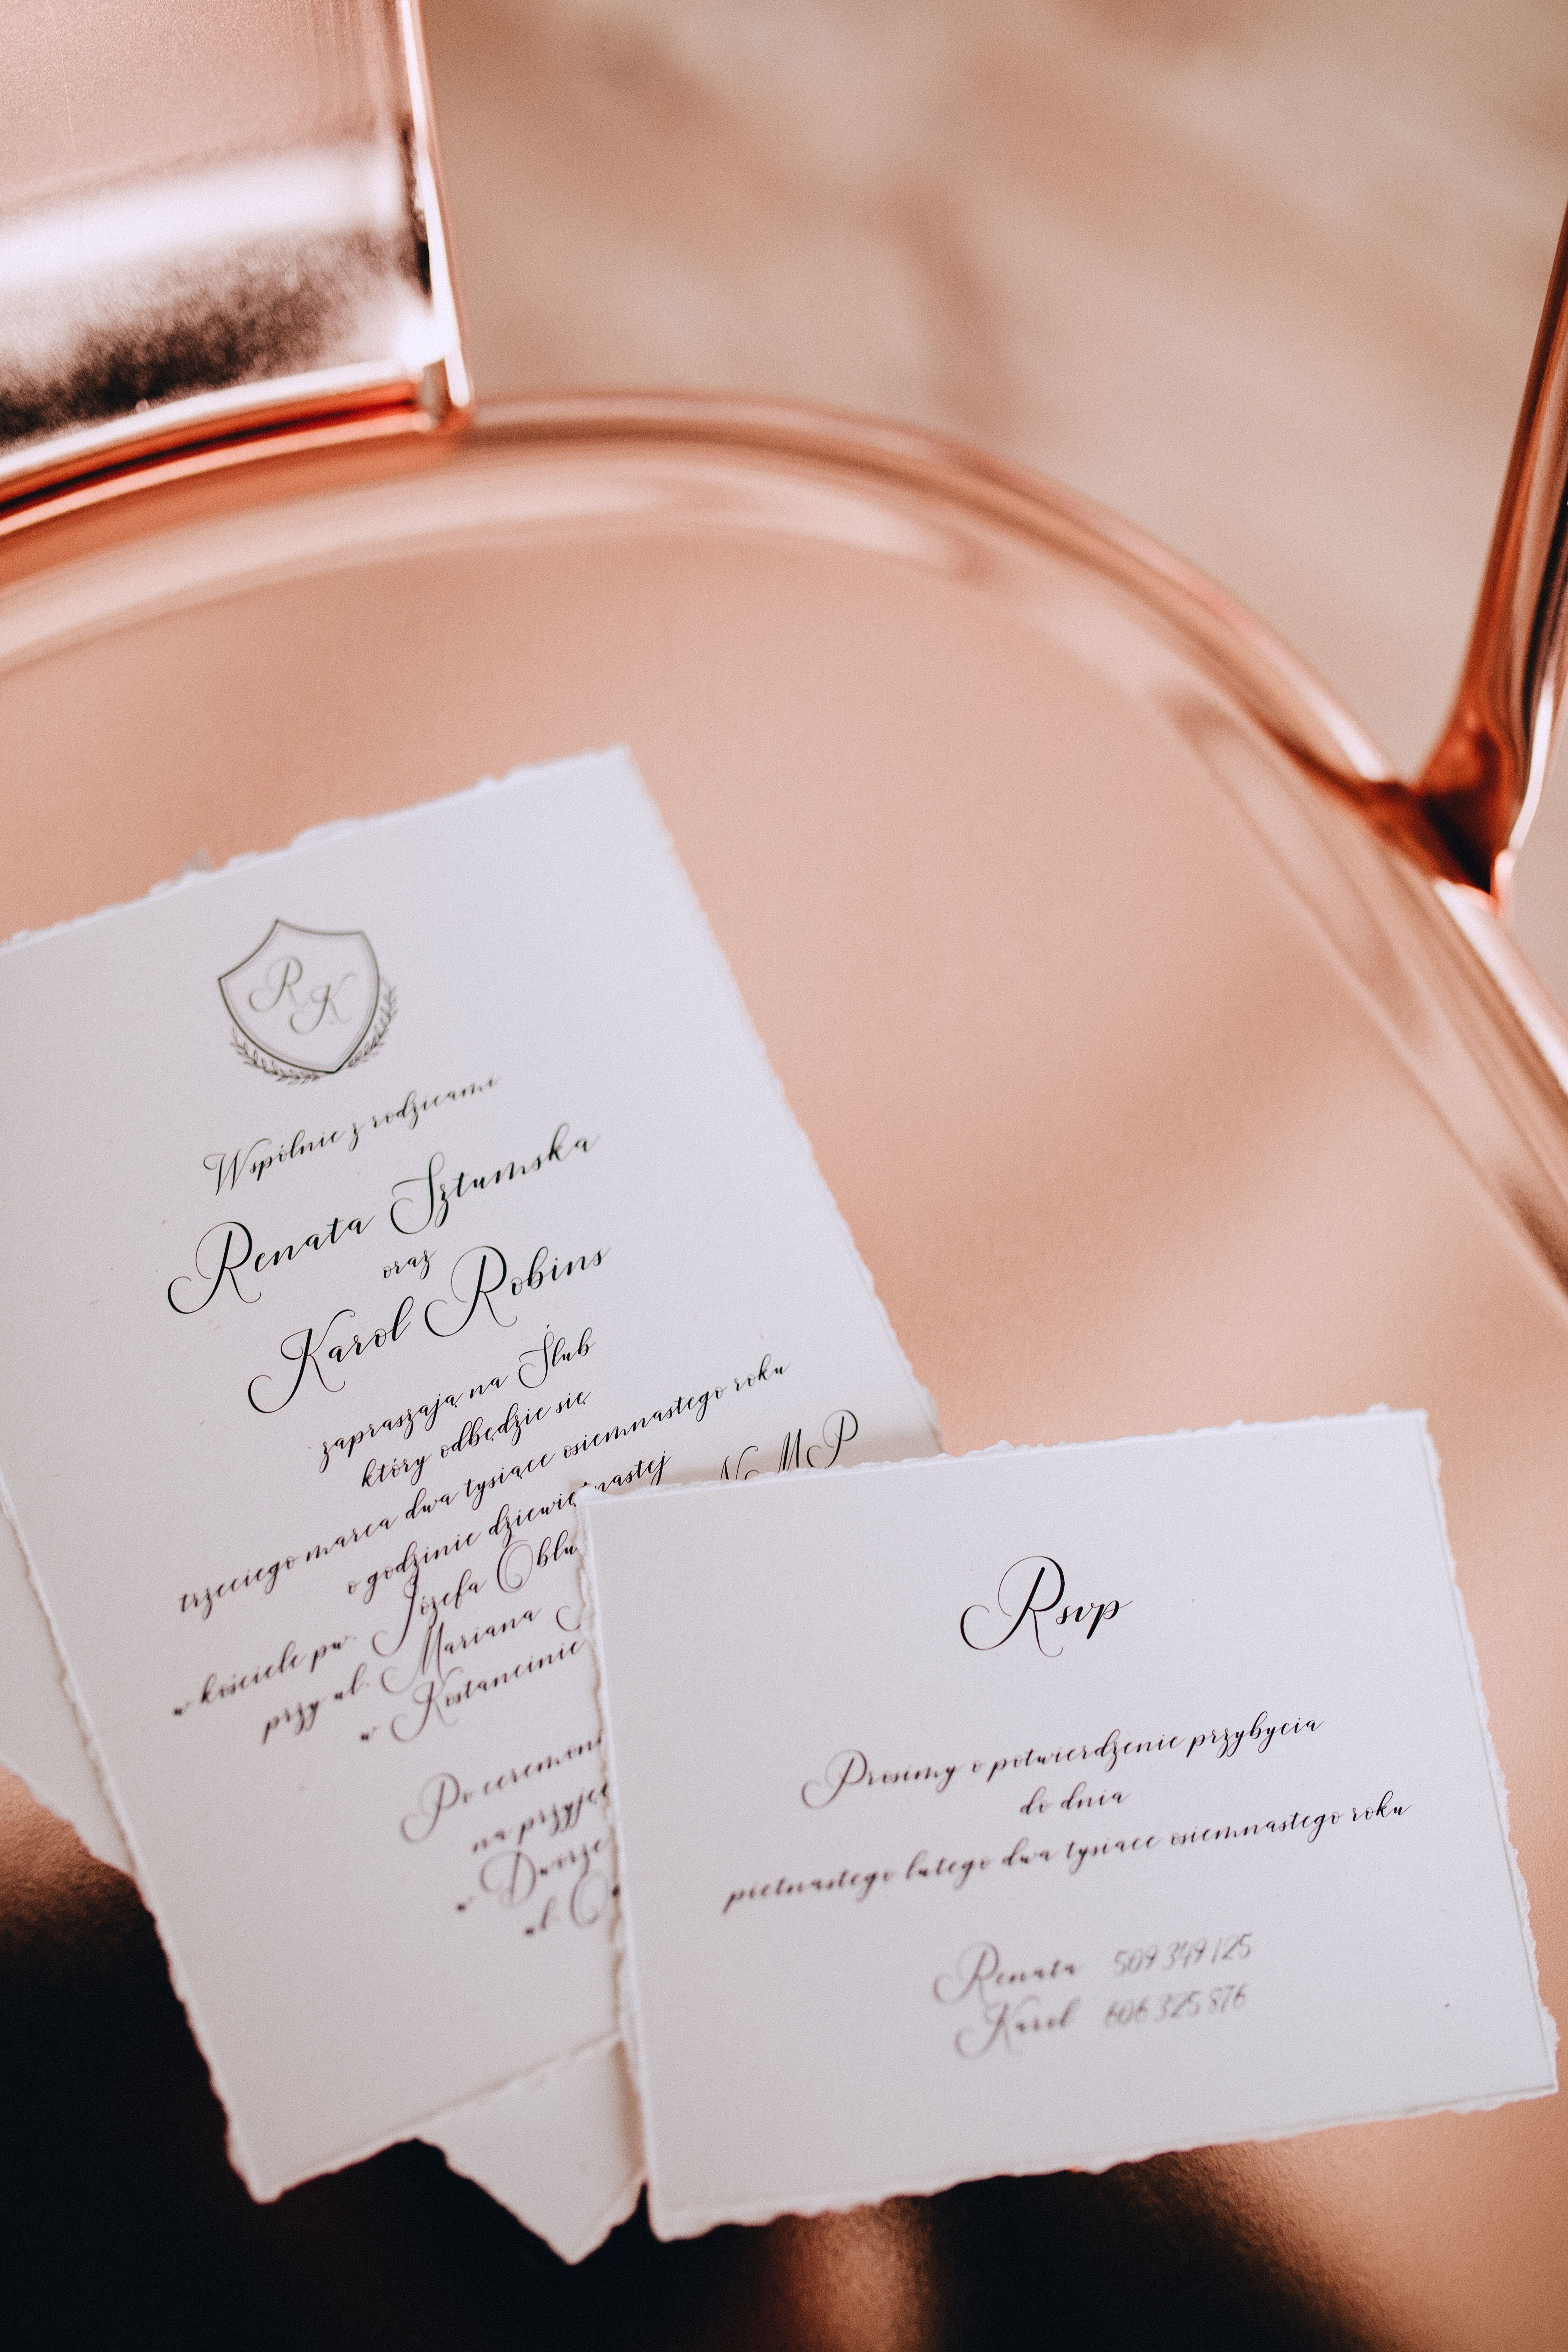 R K
Wspólnie z rodzicami
Renata Sztumska
oraz
Karol Robins
zapraszają na Ślub
który odbędzie się
trzeciego marca dwa tysiące osiemnastego roku
o godzinie dziewiętnastej
w kościele pw. Józefa Oblu NMP
przy ul. Mariana
w Kostancinie
Po ceremoni
na przyjęc
w Dworze
ul. O
Rsvp
Prosimy o potwierdzenie przybycia
do dnia
pietnastego lutego dwa tysiace osiemnastego roku
Renata 509 349 125
Karol 606 325 876